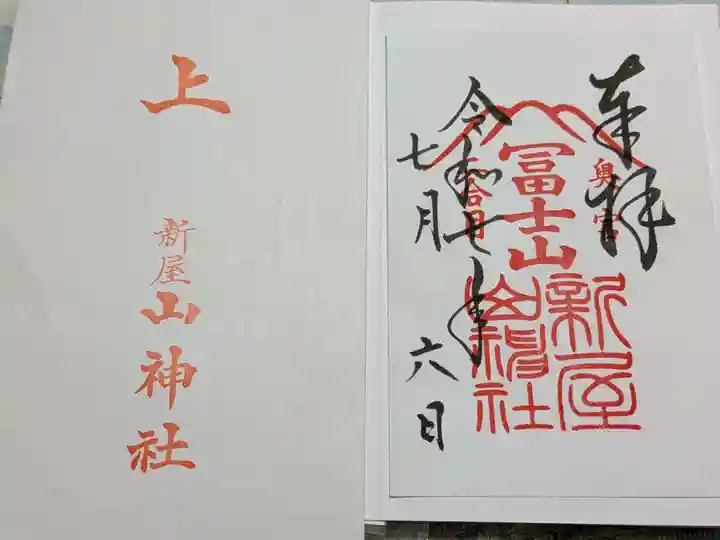 上
新屋
山神社
奉拝
奥宮
冨士山
二合目
新屋
山神社
令和七年
七月
六日